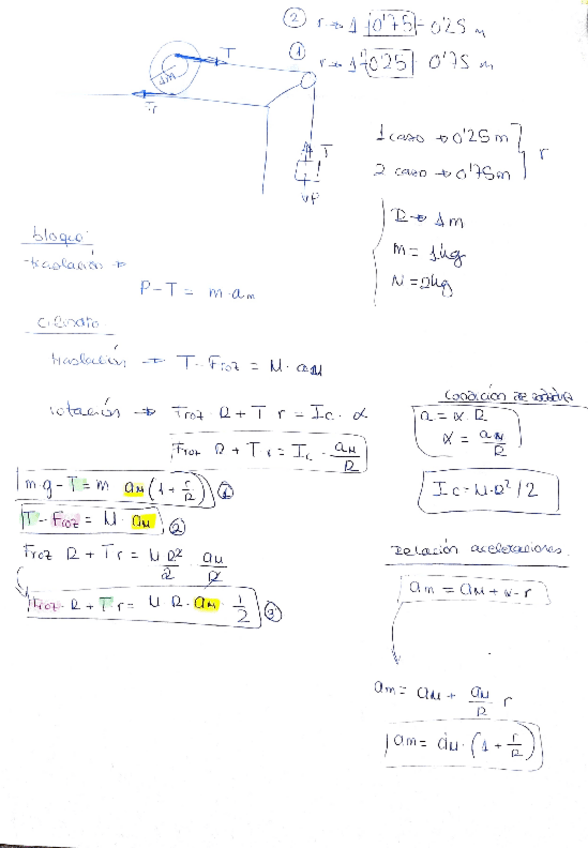 ② r → 1 - 0'75 = 0'25 m
①
r → 1 - 0'25 = 0'75 m
T
1M
Fr
T
1 caso → 0'25 m
2 caso → 0'75 m
r
VP
R → 1m
m = 1kg
M = 2kg
bloque:
traslación →
P - T = m · am
cilindro
traslación → T - Froz = M · aM
rotación → Froz · R + T r = Ic · α
Froz R + T r = Ic · aM/R
condición de rodadura
a = α · R
α = aM/R
Ic = M · R²/2
m·g - T = m aM (1 + r/R) ①
T - Froz = M · aM ②
Froz R + T r = M R²/2 · aM/R
Froz · R + T r = M R · aM · 1/2 ③
Relación aceleraciones.
am = aM + α · r
am = aM + aM/R r
am = aM · (1 + r/R)